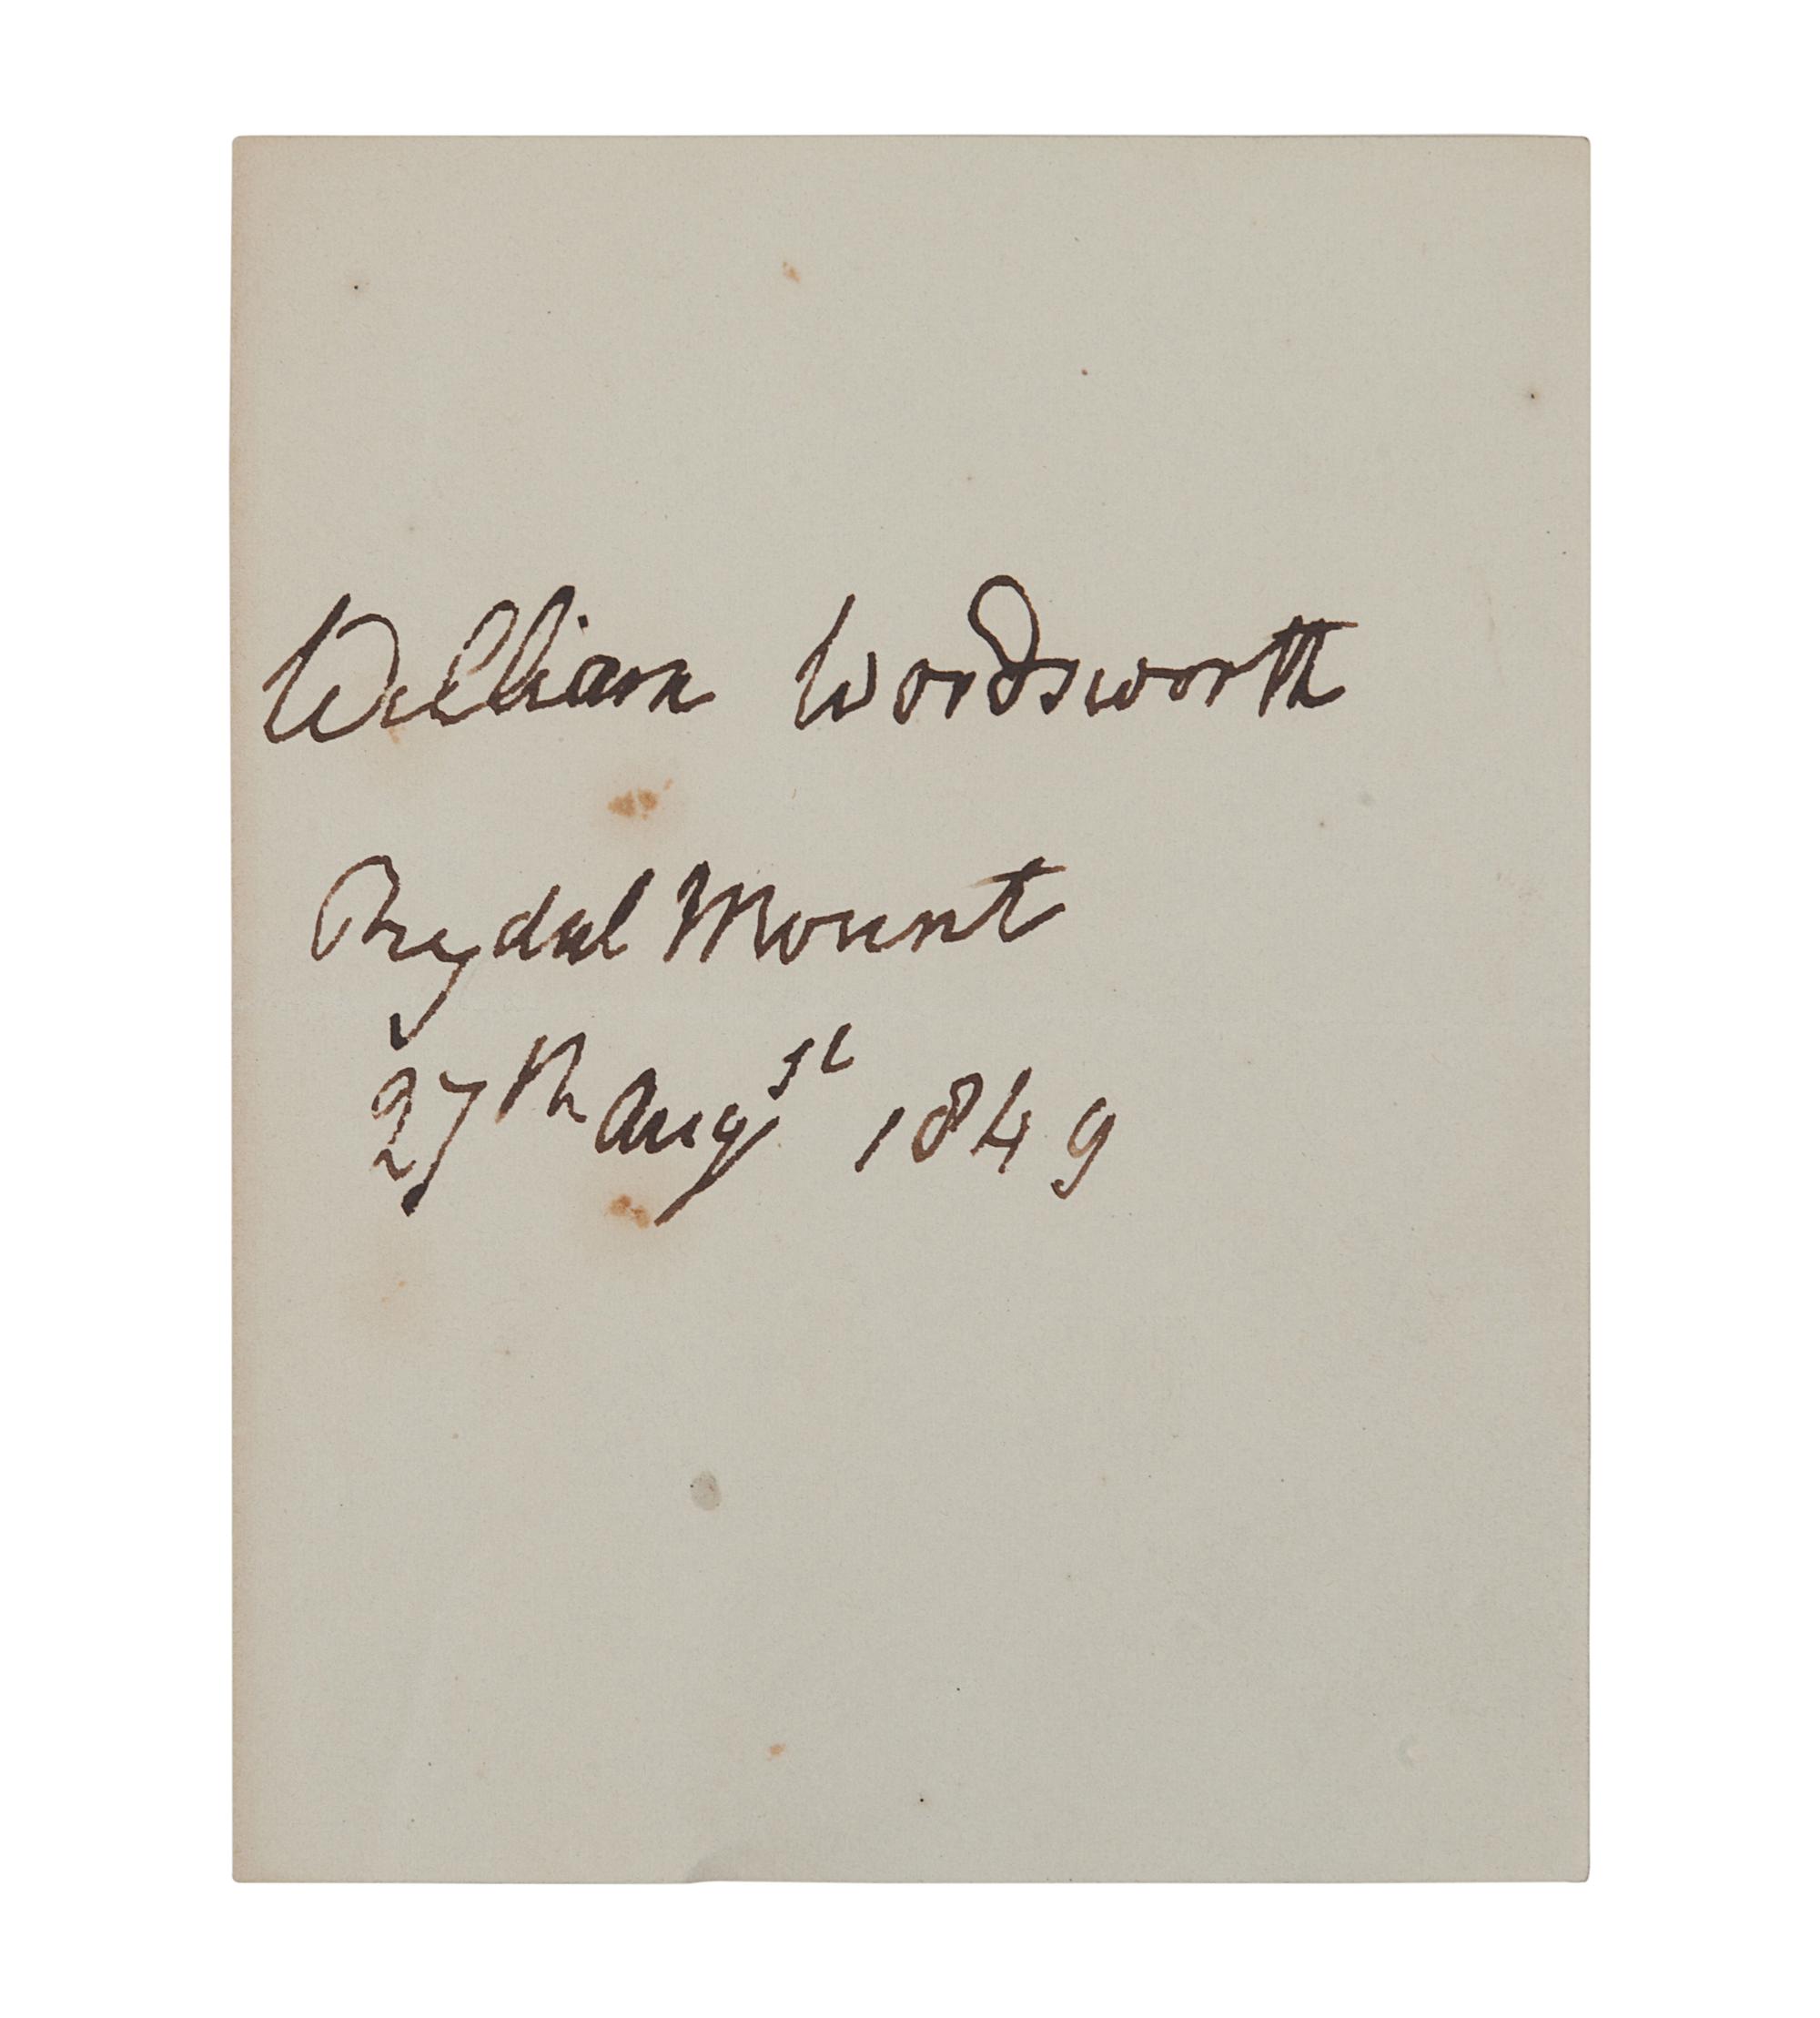 William Wordsworth
Rydal Mount
27th Augst 1849